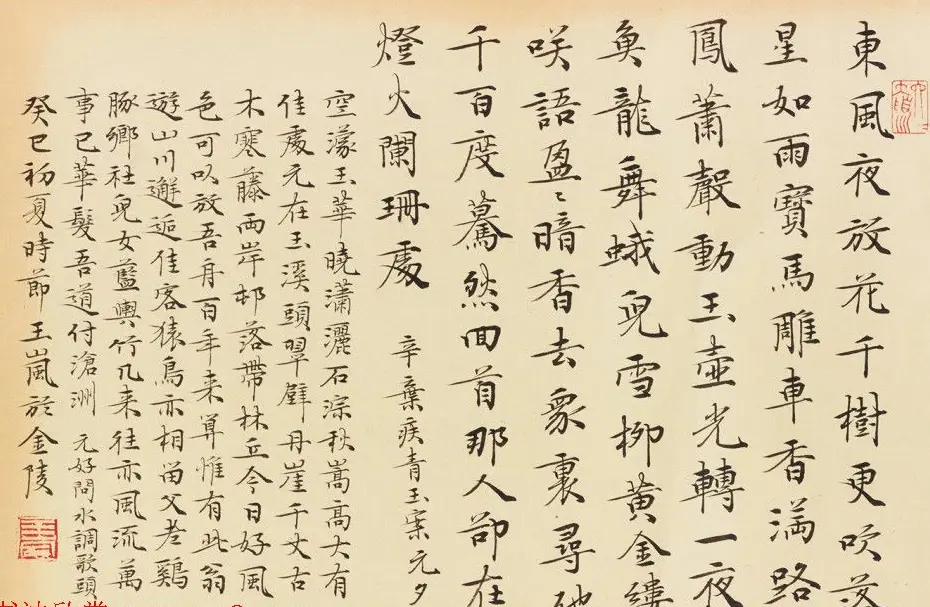 東風夜放花千樹更吹落
星如雨寶馬雕車香滿路
鳳蕭聲動玉壺光轉一夜
魚龍舞蛾兒雪柳黃金縷
咲語盈〻暗香去眾裏尋他
千百度驀然回首那人卻在
燈火闌珊處 辛棄疾青玉案元夕
空濛玉華曉瀟灑石淙秋嵩高大有
佳處元在玉溪頭翠壁丹崖千丈古
木寒藤兩岸邨落帶林丘今日好風
色可以放吾舟百年来算惟有此翁
遊山川邂逅佳客猿鳥亦相留父老鷄
豚鄉社兒女藍輿竹几来往亦風流萬
事已華髮吾道付滄洲 元好問水調歌頭
癸巳初夏時節王嵐於金陵